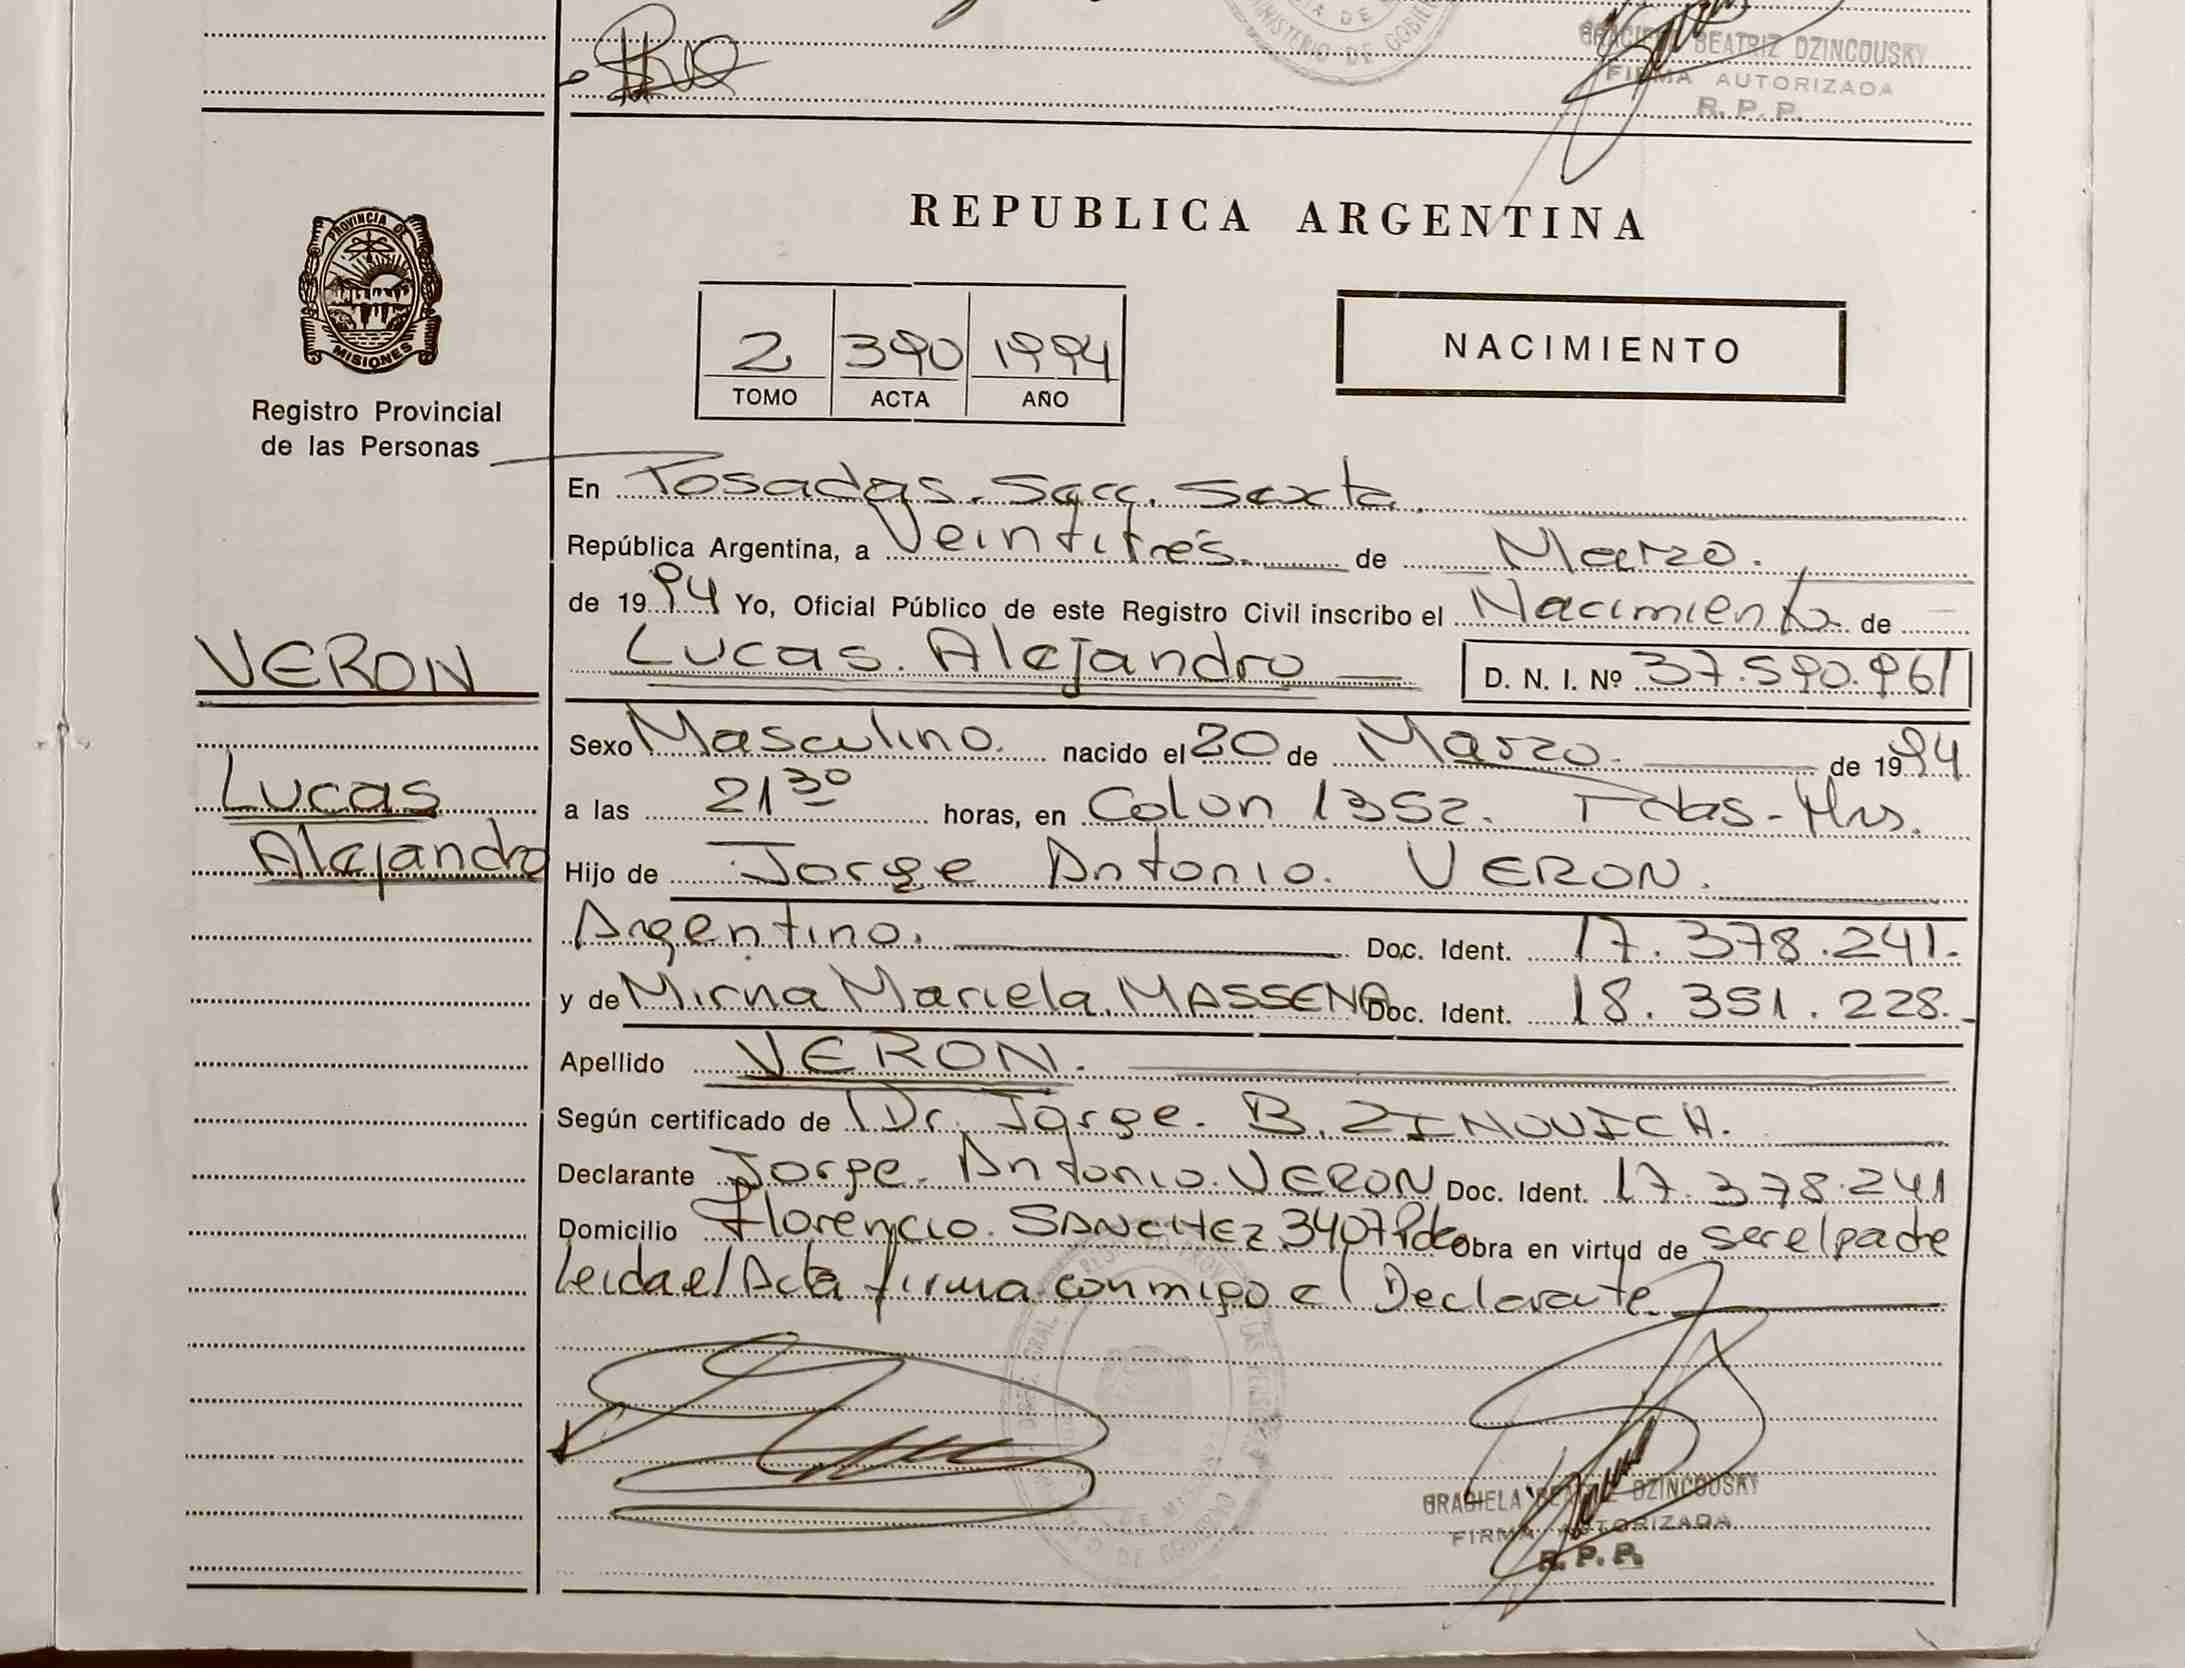 MINISTERIO DE GOBIE
GRACIELA BEATRIZ DZINCOUSKY
FIRMA AUTORIZADA
R. P. P.
PROVINCIA DE
MISIONES
Registro Provincial
de las Personas
REPUBLICA ARGENTINA
2 390 1994
TOMO ACTA AÑO
NACIMIENTO
En Posadas. Secc. Sexta
República Argentina, a Veintitrés. de Marzo.
de 1994 Yo, Oficial Público de este Registro Civil inscribo el Nacimiento de
Lucas. Alejandro D. N. I. Nº 37.590.961
VERON
Lucas
Alejandro
Sexo Masculino. nacido el 20 de Marzo. de 1994
a las 21 30 horas, en Colon 1352. Pdas-Mns.
Hijo de Jorge Antonio. VERON.
Argentino. Doc. Ident. 17.378.241.
y de Mirna Mariela. MASSENA Doc. Ident. 18.351.228.
Apellido VERON.
Según certificado de Dr. Jorge. B. ZINOVICH.
Declarante Jorge. Antonio. VERON Doc. Ident. 17.378.241
Domicilio Florencio. SANCHEZ 3407 Pdas Obra en virtud de ser el padre
Leida el Acta firma conmigo el Declarante
GRACIELA BEATRIZ DZINCOUSKY
FIRMA AUTORIZADA
R. P. P.